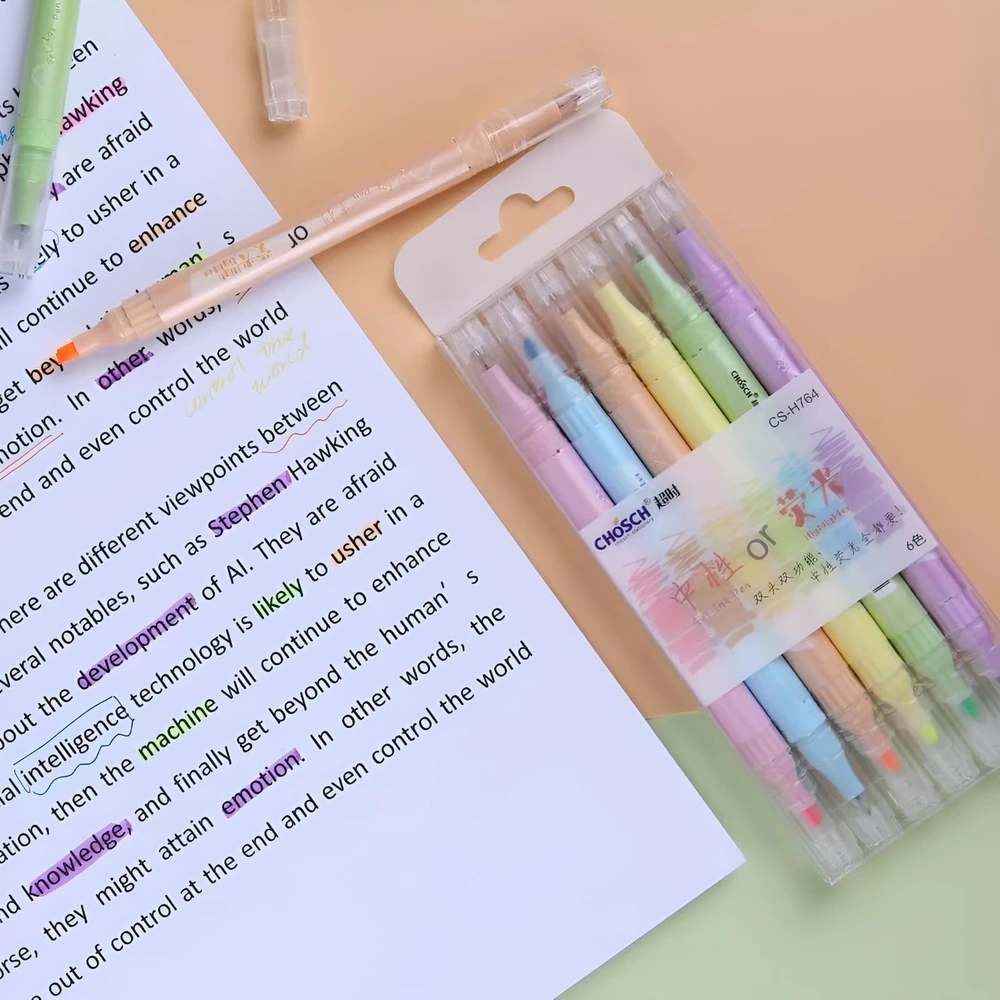 een
awking
are afraid
ely to usher in a
ill continue to enhance
human's
get bey
In other words,
control the world
motion.
end and even control the world
control the
world
here are different viewpoints between
everal notables, such as Stephen Hawking
bout the development of AI. They are afraid
ial intelligence technology is likely to usher in a
ation, then the machine will continue to enhance
nd knowledge, and finally get beyond the human's
orse, they might attain emotion. In other words, the
e out of control at the end and even control the world
or
荧光 High
lighter
CHOSCH
CS-H764
CHOSCH® 超时
中性 or 荧光
Gel-Ink Pen
Highlighter
双头双功能,
中性荧光全都要!
6色